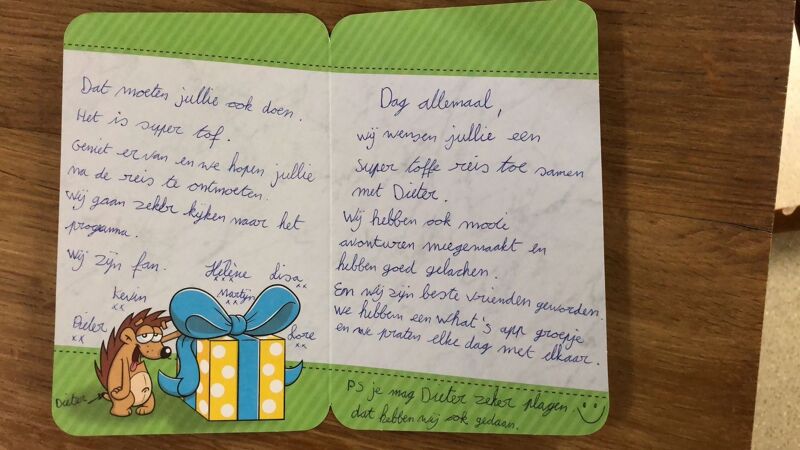 Dag allemaal,
wij wensen jullie een
super toffe reis toe samen
met Dieter.
Wij hebben ook mooie
avonturen meegemaakt en
hebben goed gelachen.
En wij zijn beste vrienden geworden.
We hebben een What's app groepje
en we praten elke dag met elkaar.
PS je mag Dieter zeker plagen
dat hebben wij ook gedaan.
Dat moeten jullie ook doen.
Het is super tof.
Geniet ervan en we hopen jullie
na de reis te ontmoeten.
Wij gaan zeker kijken naar het
programma.
Wij zijn fan.
Hélène Lisa
xxx xx
Kevin Martijn
xx xx
Dieter Lore
xx xx
Dieter